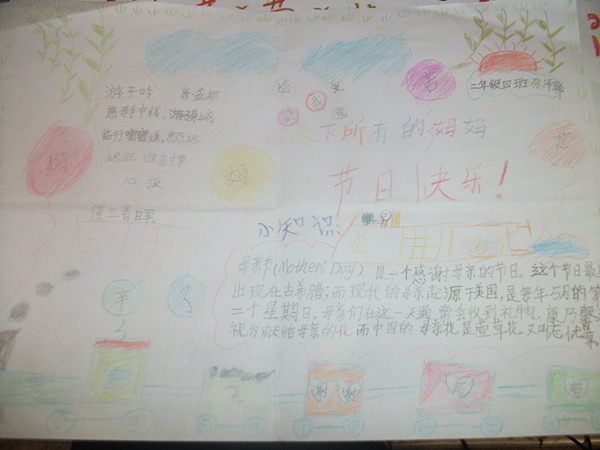 游子吟 唐孟郊
慈母手中线，游
临行密密缝，
迟归 谁言寸草
心，报
得三春晖。
二年级四班
天下所有的妈妈
节日快乐！
妈
妈
您
小知识
母亲节(Mother' Day）是一个感谢母亲的节日。这个节日最
出现在古希腊；而现代的母亲起源于美国，是每年5月的第
二个星期日。母亲们在这一天通常会收到礼物，康乃馨
视为献给母亲的花，而中国的母亲花是萱草花，又叫忘忧草
辛
谢 谢